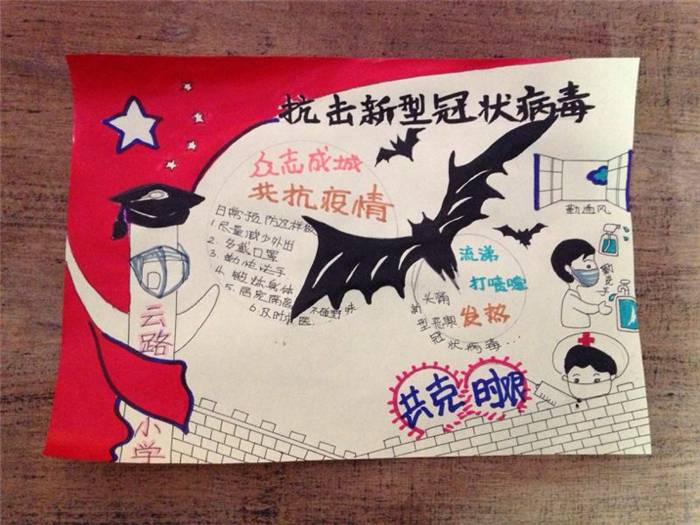 抗击新型冠状病毒
众志成城
共抗疫情
日常预防这样做
1.尽量减少外出
2.多戴口罩
3.勤洗洗手
4.锻炼身体
5.居室清洁 不碰野味
6.及时就医...
流涕
打喷嚏
发热
新
型
冠状病毒...
勤通风
勤洗手
共克时艰
云路
小学